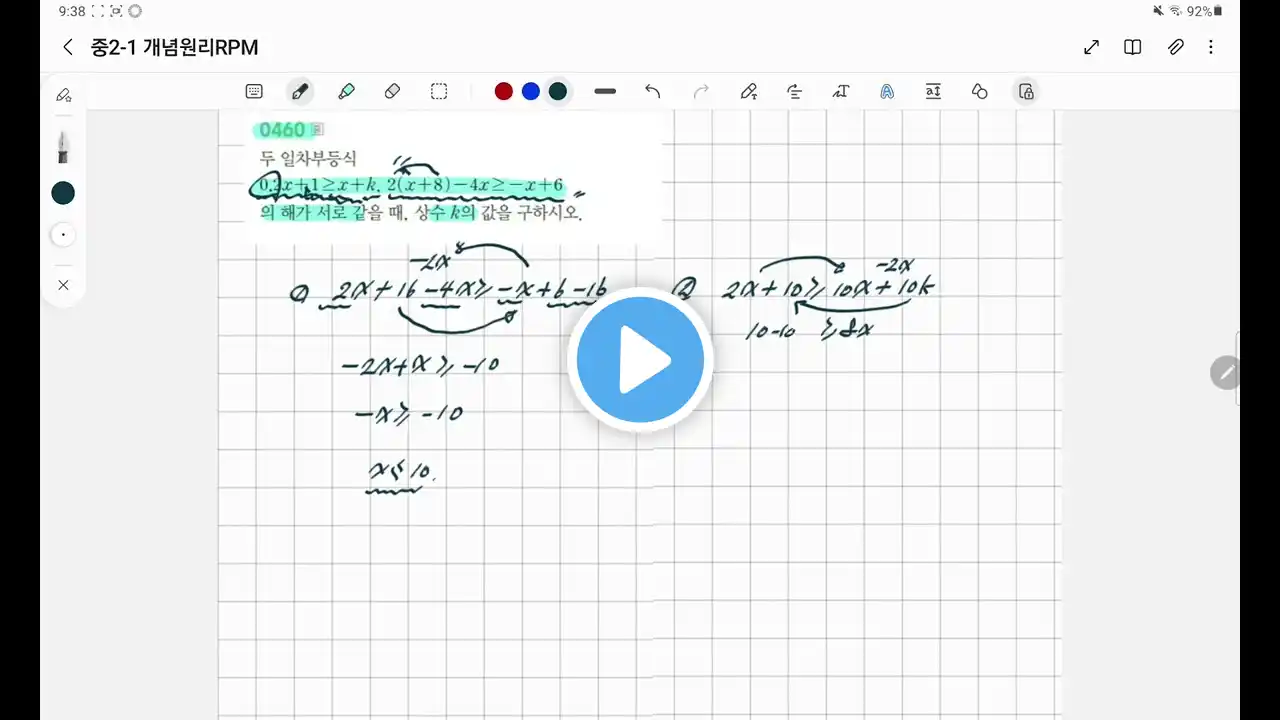 9:38
92%
중2-1 개념원리RPM
0460
두 일차부등식
0.2x+1≥x+k, 2(x+8)-4x≥-x+6
의 해가 서로 같을 때, 상수 k의 값을 구하시오.
-2x
① 2x+16-4x≥-x+6-16
-2x+x≥-10
-x≥-10
x≤10.
-2x
② 2x+10≥10x+10k
10-10 ≥8x